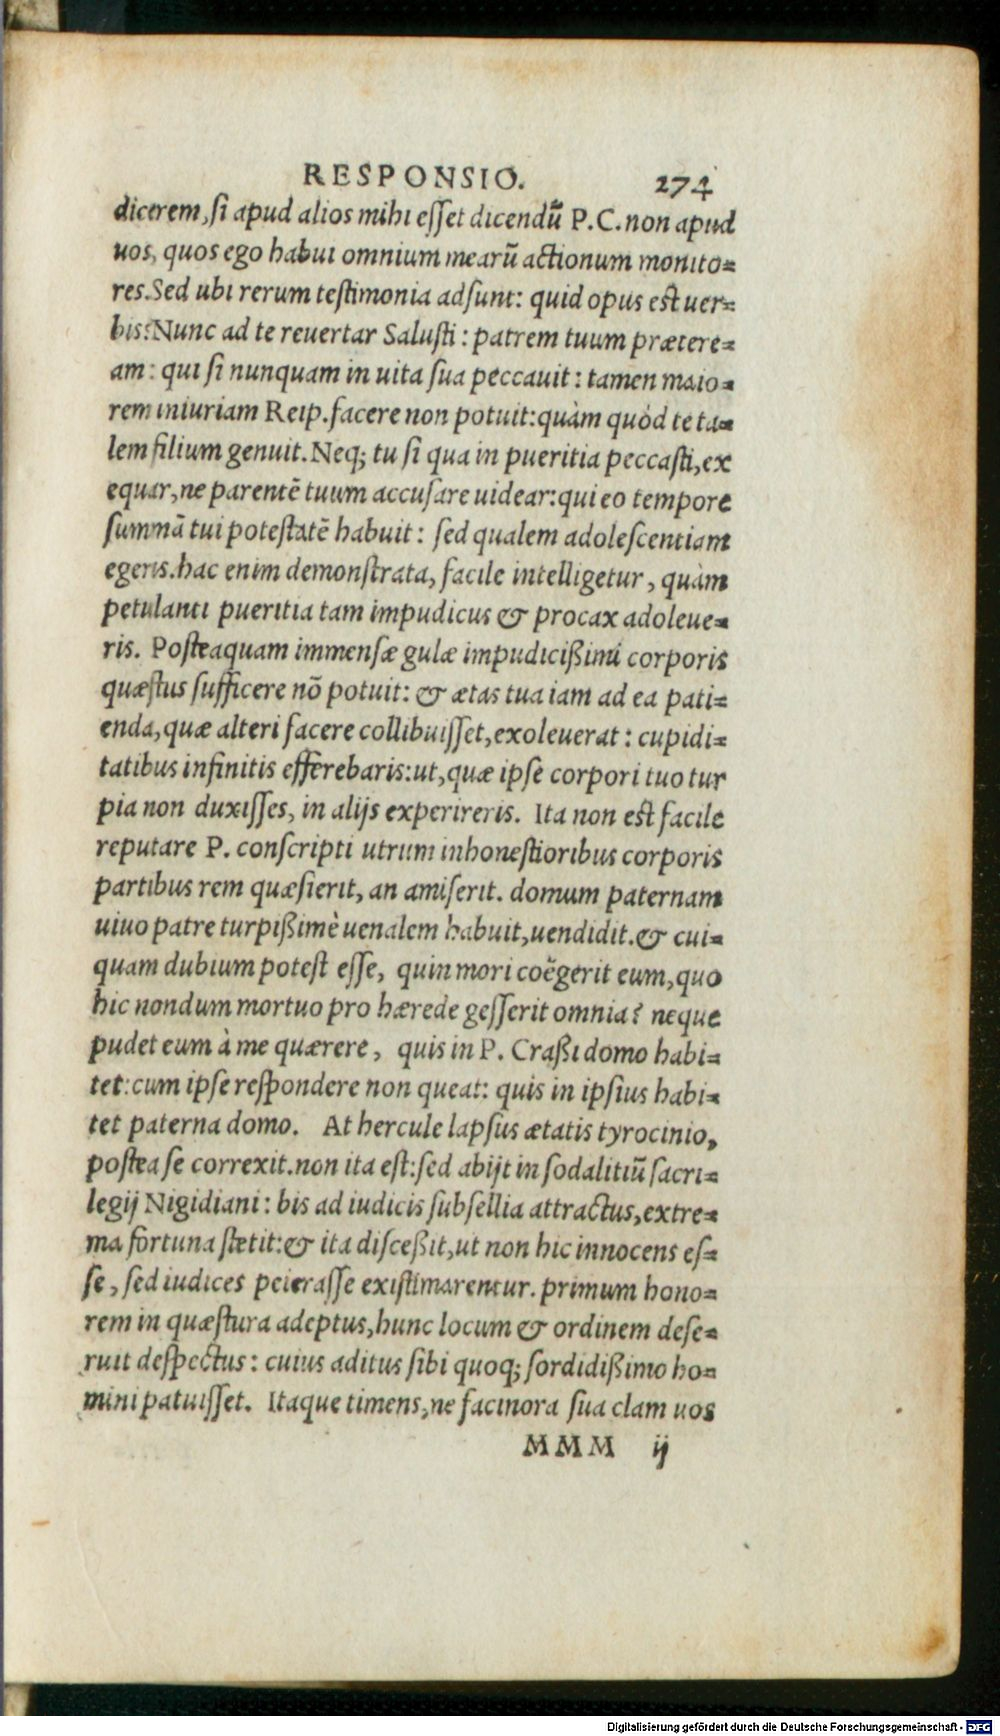 RESPONSIO. 274
dicerem, si apud alios mihi esset dicendū P.C. non apud
uos, quos ego habui omnium mearū actionum monito=
res. Sed ubi rerum testimonia adsunt: quid opus est uer=
bis? Nunc ad te reuertar Salusti: patrem tuum prætere=
am: qui si nunquam in uita sua peccauit: tamen maio=
rem iniuriam Reip. facere non potuit: quàm quòd te ta=
lem filium genuit. Neq; tu si qua in pueritia peccasti, ex
equar, ne parentē tuum accusare uidear: qui eo tempore
summā tui potestatē habuit: sed qualem adolescentiam
egeris. hac enim demonstrata, facile intelligetur, quàm
petulanti pueritia tam impudicus & procax adoleue=
ris. Posteaquam immensæ gulæ impudicißimi corporis
quæstus sufficere nō potuit: & ætas tua iam ad ea pati=
enda, quæ alteri facere collibuisset, exoleuerat: cupidi=
tatibus infinitis efferebaris: ut, quæ ipse corpori tuo tur
pia non duxisses, in alijs experireris. Ita non est facile
reputare P. conscripti utrum inhonestioribus corporis
partibus rem quæsierit, an amiserit. domum paternam
uiuo patre turpißimè uenalem habuit, uendidit. & cui=
quam dubium potest esse, quin mori coëgerit eum, quo
hic nondum mortuo pro hærede gesserit omnia? neque
pudet eum à me quærere, quis in P. Craßi domo habi=
tet: cum ipse respondere non queat: quis in ipsius habi=
tet paterna domo. At hercule lapsus ætatis tyrocinio,
postea se correxit. non ita est: sed abijt in sodalitiū sacri=
legij Nigidiani: bis ad iudicis subsellia attractus, extre=
ma fortuna stetit: & ita disceßit, ut non hic innocens es=
se, sed iudices peierasse existimarentur. primum hono=
rem in quæstura adeptus, hunc locum & ordinem dese=
ruit despectus: cuius aditus sibi quoq; sordidißimo ho=
mini patuisset. Itaque timens, ne facinora sua clam uos
MMM ij
Digitalisierung gefördert durch die Deutsche Forschungsgemeinschaft - DFG